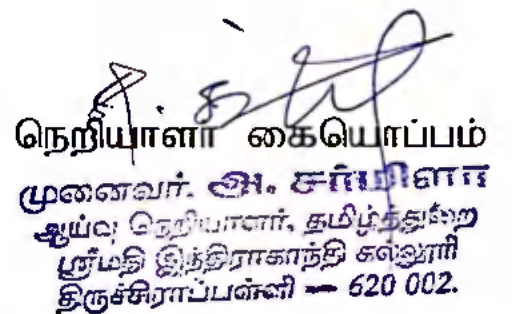 நெறியாளர் கையொப்பம்
முனைவர். அ. சர்மிளா
ஆய்வு நெறியாளர், தமிழ்த்துறை
ஸ்ரீமதி இந்திராகாந்தி கல்லூரி
திருச்சிராப்பள்ளி — 620 002.